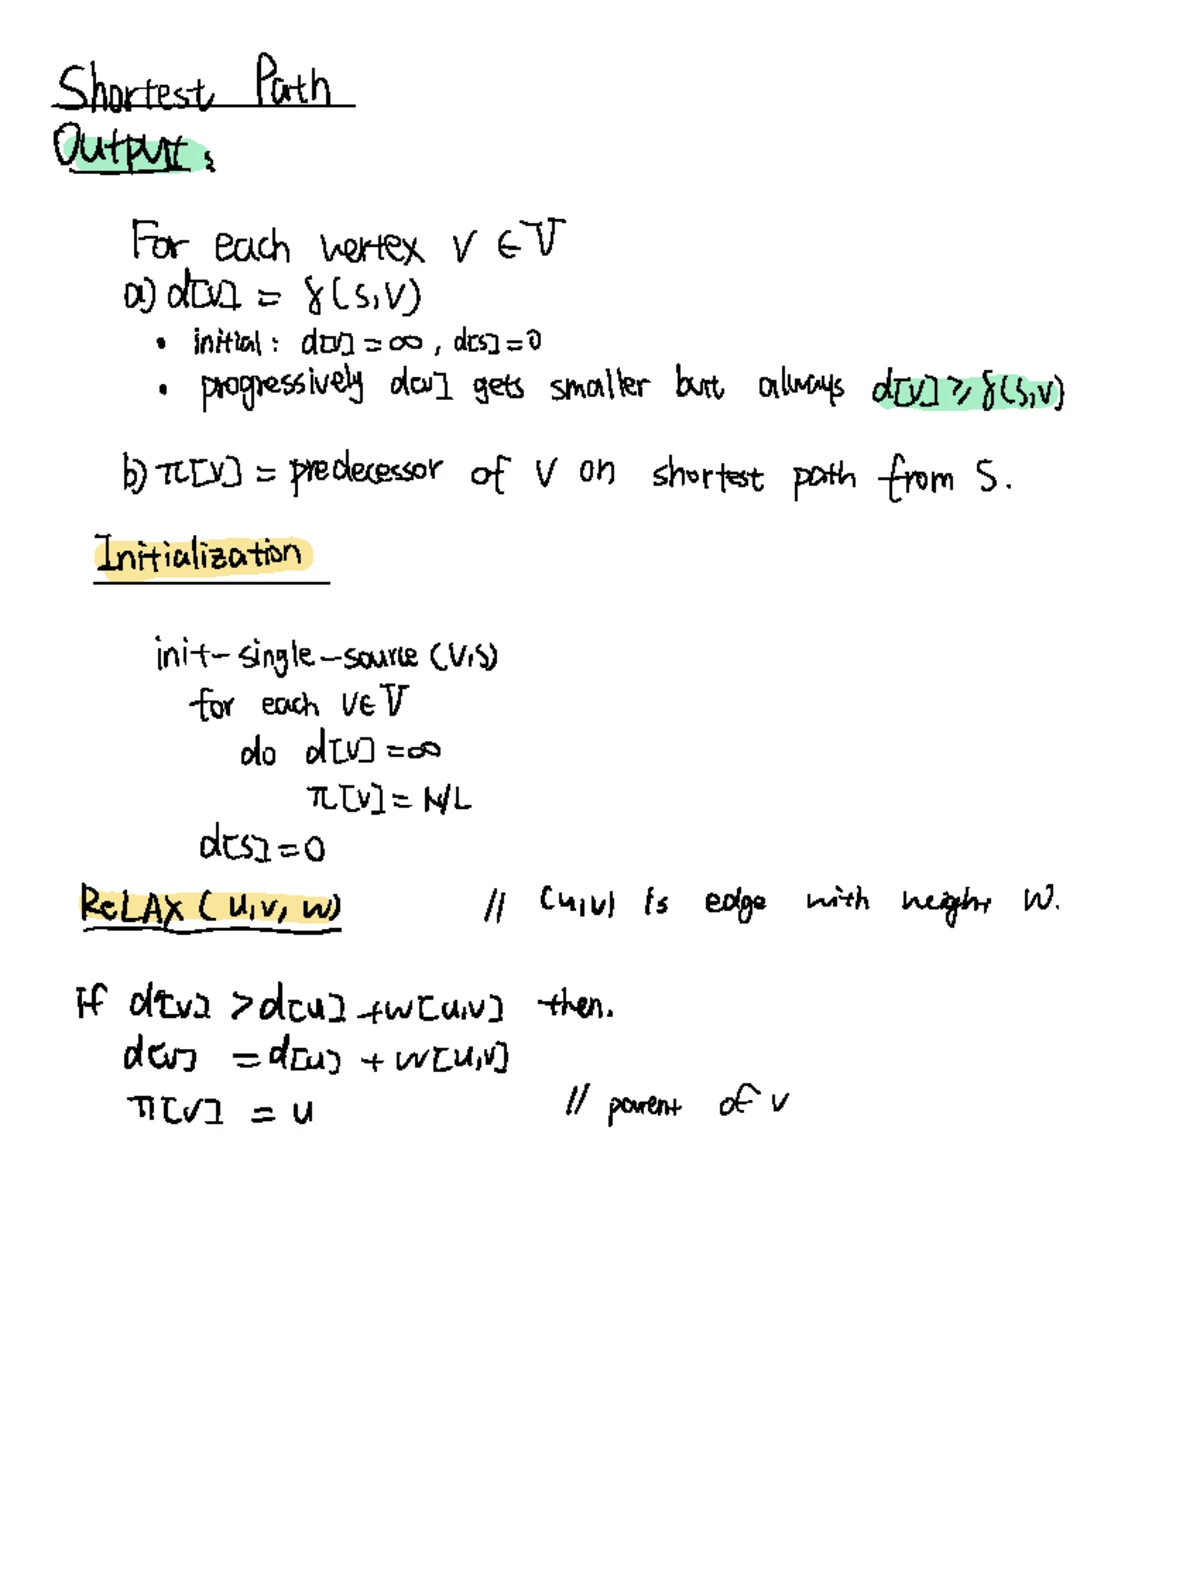 Shortest Path
Output:
For each vertex v ∈ V
a) d[v] = δ(s,v)
• initial: d[v] = ∞, d[s] = 0
• progressively d[v] gets smaller but always d[v] ≥ δ(s,v)
b) π[v] = predecessor of v on shortest path from s.
Initialization
init-single-source (V,s)
for each v ∈ V
do d[v] = ∞
π[v] = NIL
d[s] = 0
ReLAX (u,v, w) // (u,v) is edge with weight w.
If d[v] > d[u] + w[u,v] then.
d[v] = d[u] + w[u,v]
π[v] = u // parent of v